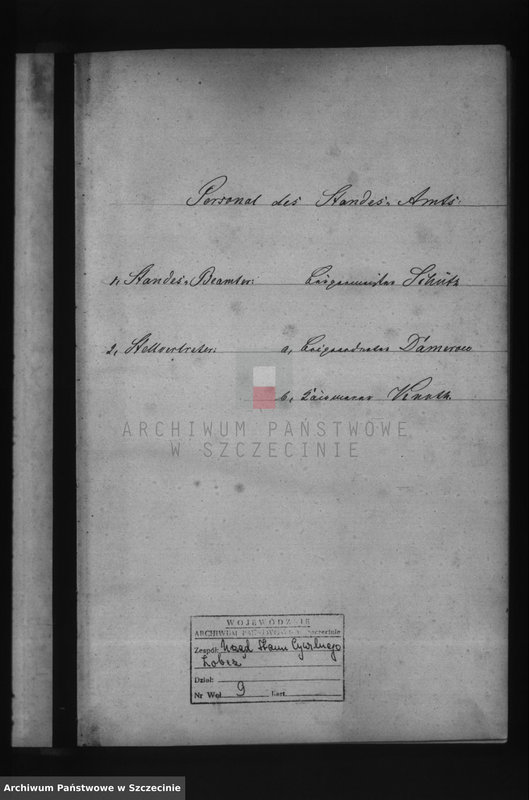 Personal des Standes-Amts.
1, Standes-Beamter: Bürgermeister Schütz
2, Stellvertreter: a, Beigeordneter Damerow
b, Kämmerer
ARCHIWUM PAŃSTWOWE
W SZCZECINIE
WOJEWÓDZKIE
ARCHIWUM PAŃSTWOWE w Szczecinie
Zespół: Urząd Stanu Cywilnego
Łobez
Dział:
Nr Wol. 9 Kart.
Archiwum Państwowe w Szczecinie